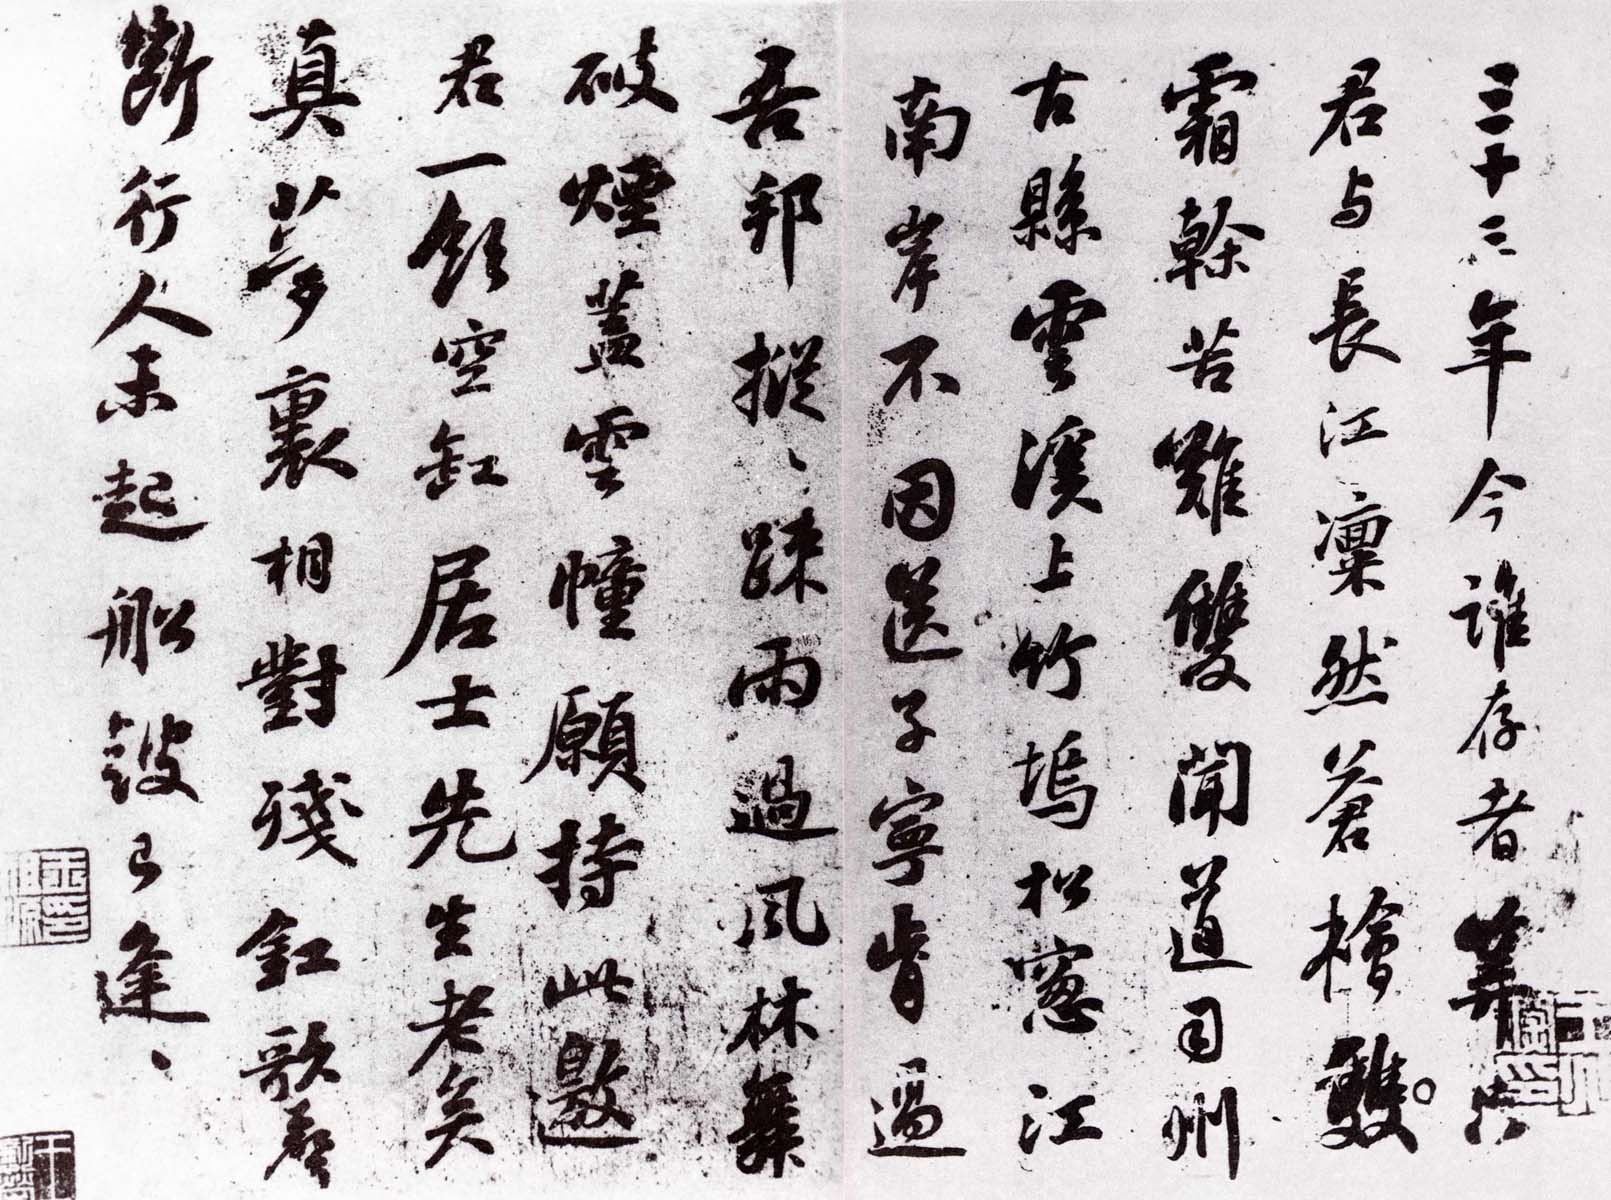 三十三年今誰存者算只
君与長江凛然蒼檜雙
霜幹苦難雙聞道司州
古縣雲溪上竹塢松窓江
南岸不因送子寧肯過
吾邦摐、踈雨過風林舞
破煙蓋雲幢願持此邀
君一飲空缸居士先生老矣
真夢裏相對殘釭歌聲
斷行人未起船鼓已逢、